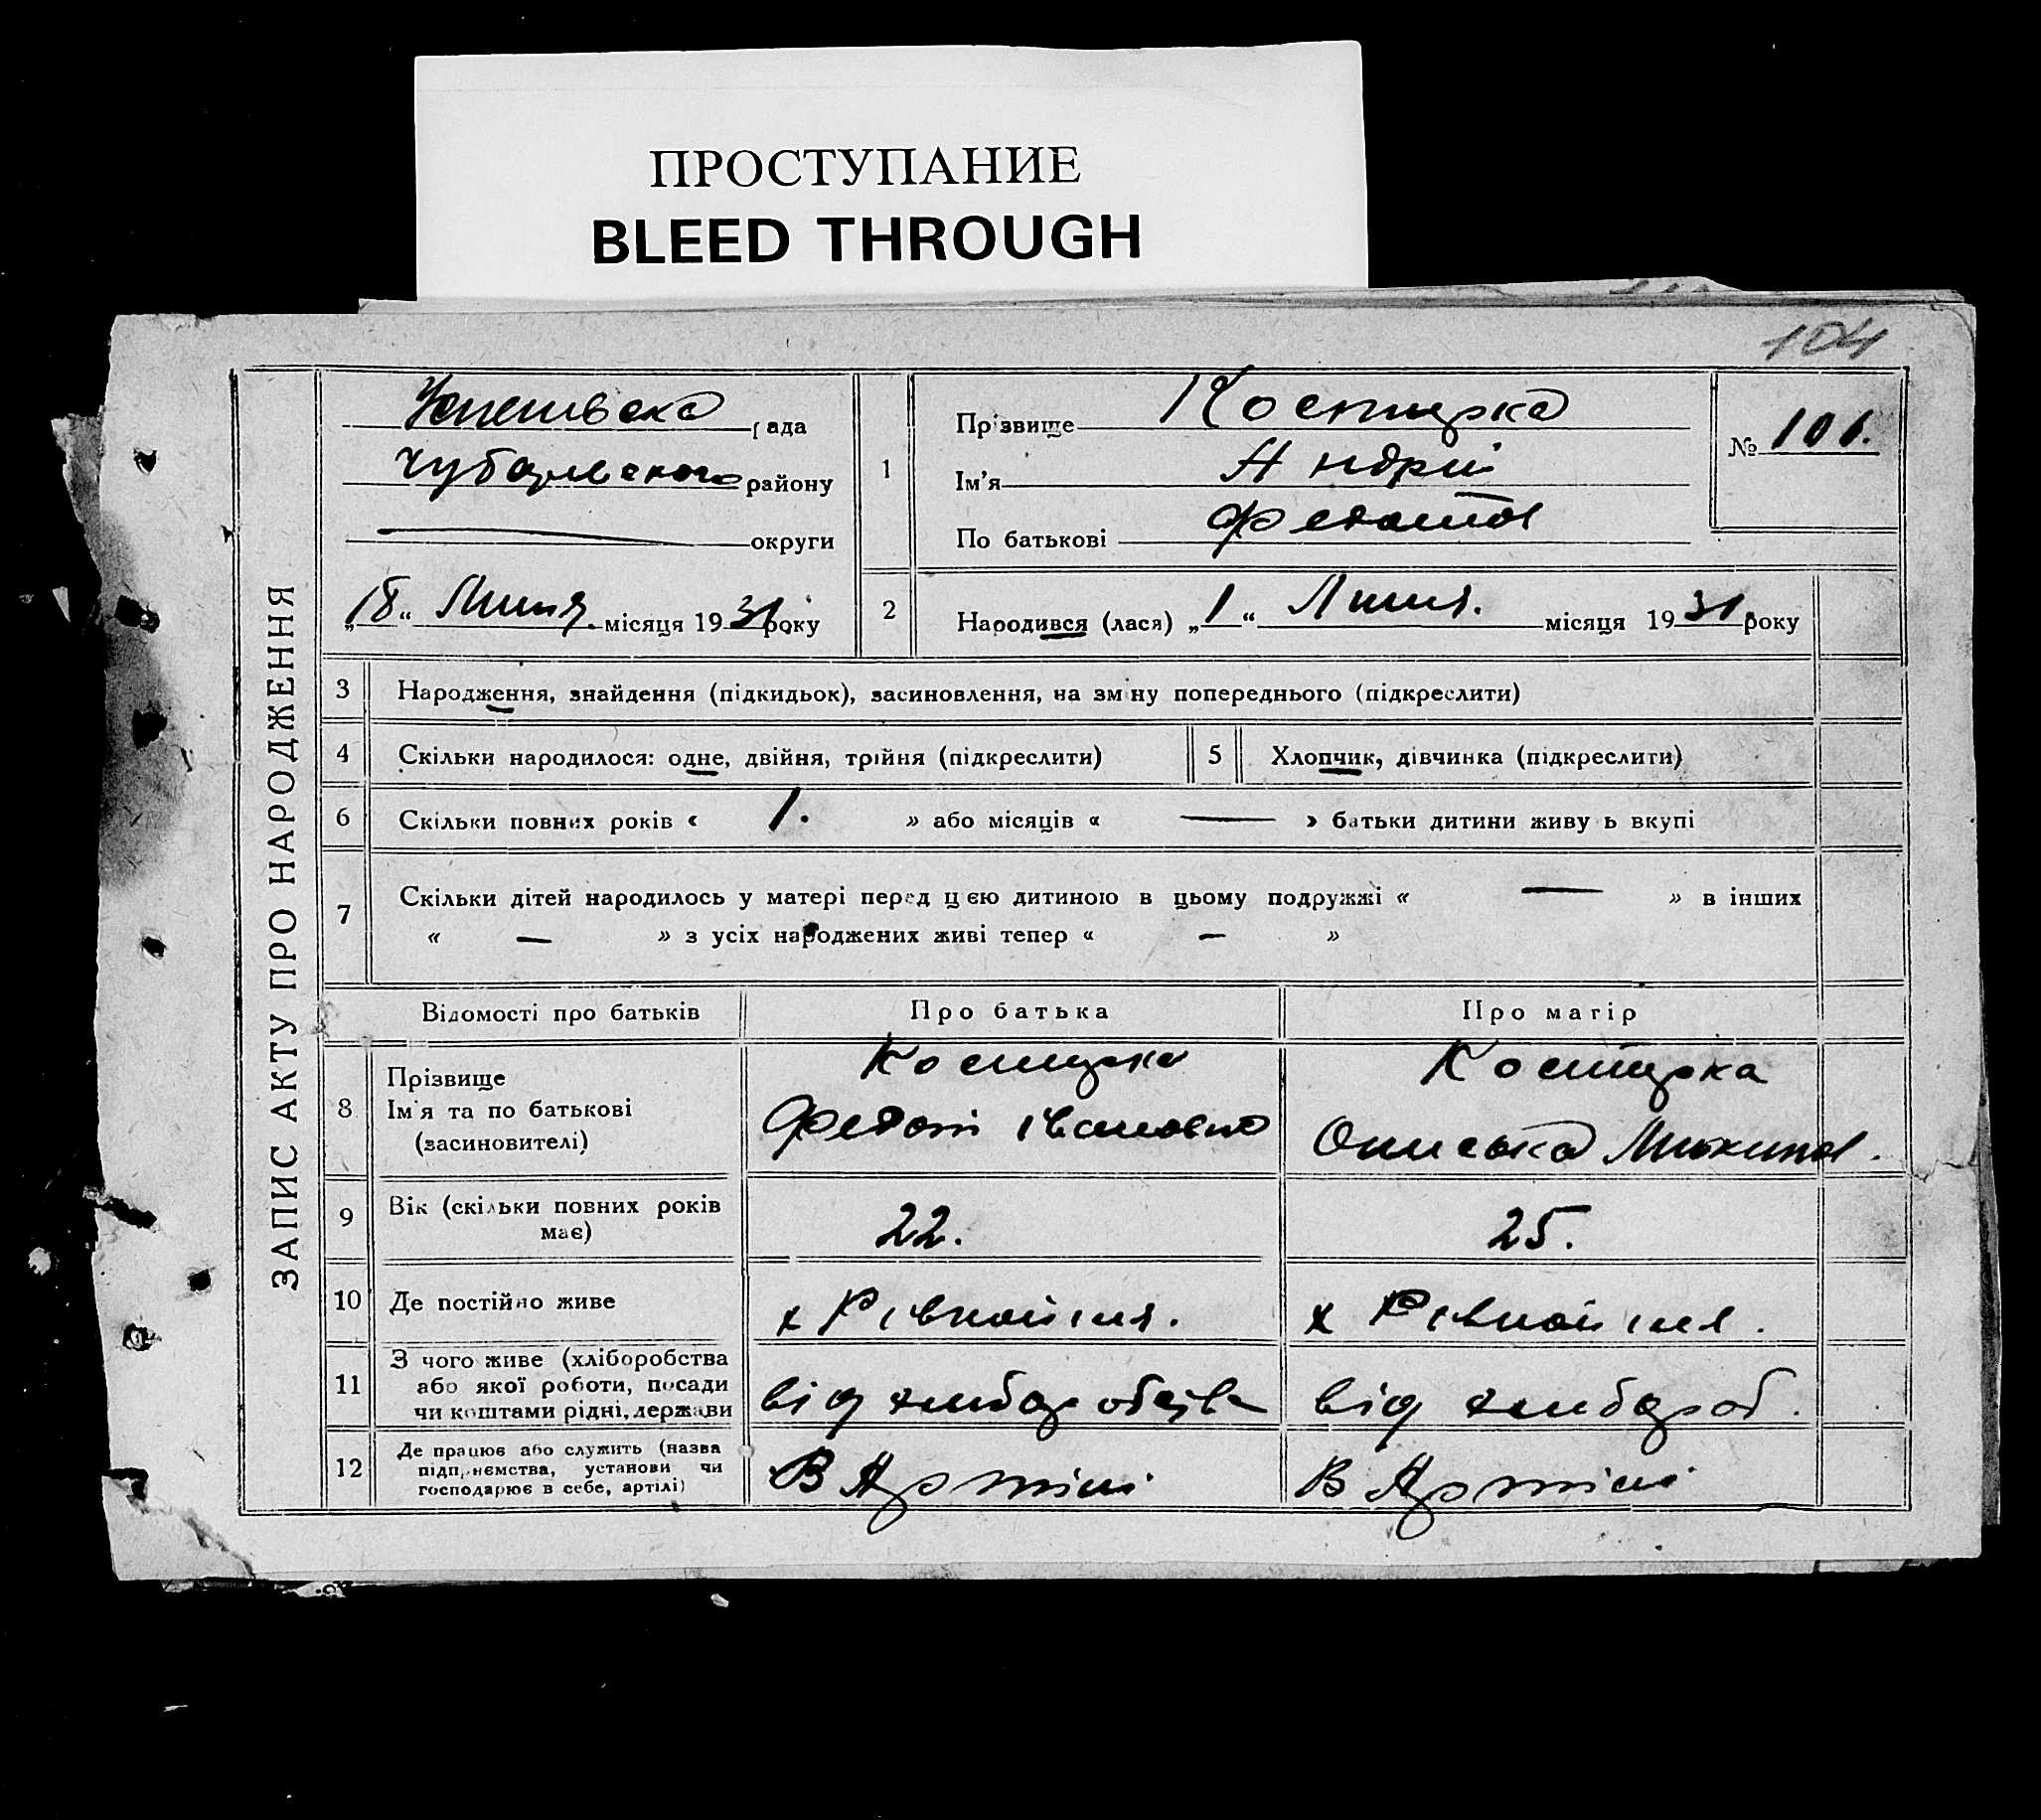 ПРОСТУПАНИЕ
BLEED THROUGH
104
ЗАПИС АКТУ ПРО НАРОДЖЕННЯ
рада
Чубарівського району
— округи
„18“ Липня місяця 1931 року
1
Прізвище Костирка
Ім'я Андрій
По батькові Федотов
№ 101.
2
Народився (лася) „1“ Липня. місяця 1931 року
3 Народження, знайдення (підкидьок), засиновлення, на зміну попереднього (підкреслити)
4 Скільки народилося: одне, двійня, трійня (підкреслити)
5 Хлопчик, дівчинка (підкреслити)
6 Скільки повних років « 1. » або місяців « — » батьки дитини живуть вкупі
7 Скільки дітей народилось у матері перед цією дитиною в цьому подружжі « — » в інших
« — » з усіх народжених живі тепер « — »
Відомості про батьків Про батька Про матір
8 Прізвище
Ім'я та по батькові
(засиновителі)
Костирка
Федот Іванович
Костирка
Ониська Микитов.
9 Вік (скільки повних років
має)
22.
25.
10 Де постійно живе
х Рівнопілля.
х Рівнопілля.
11 З чого живе (хліборобства
або якої роботи, посади
чи коштами рідні, держави
від хліборобств
від хлібороб.
12 Де працює або служить (назва
підприємства, установи чи
господарює в себе, артілі)
В Артілі
В Артілі